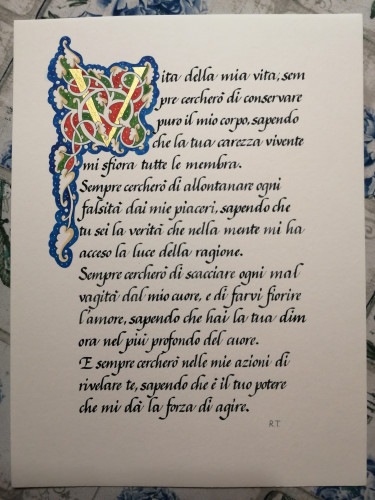 Vita della mia vita, sem
pre cercherò di conservare
puro il mio corpo, sapendo
che la tua carezza vivente
mi sfiora tutte le membra.
Sempre cercherò di allontanare ogni
falsità dai mie piaceri, sapendo che
tu sei la verità che nella mente mi ha
acceso la luce della ragione.
Sempre cercherò di scacciare ogni mal
vagità dal mio cuore, e di farvi fiorire
l'amore, sapendo che hai la tua dim
ora nel più profondo del cuore.
E sempre cercherò nelle mie azioni di
rivelare te, sapendo che è il tuo potere
che mi dà la forza di agire.
R.T